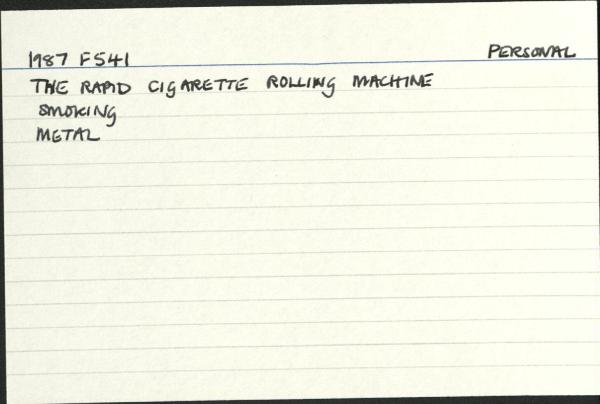 1987 F541 PERSONAL
THE RAPID CIGARETTE ROLLING MACHINE
SMOKING
METAL